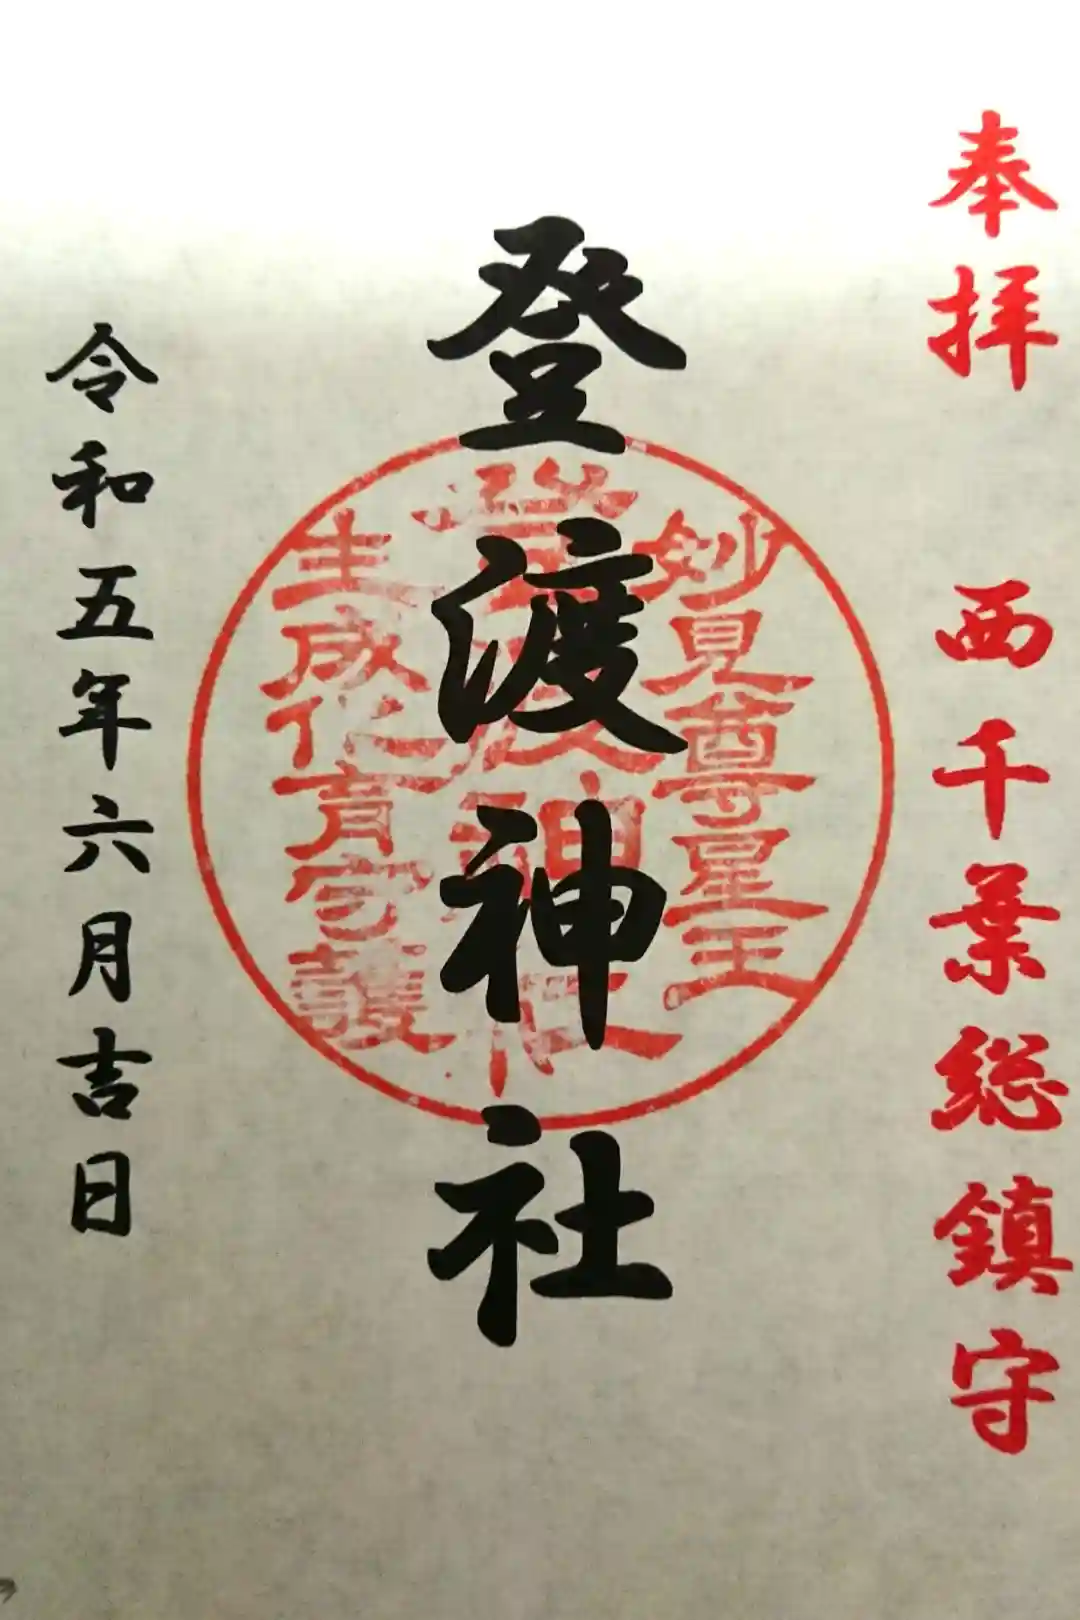 奉拝 西千葉総鎮守
登渡神社
妙見尊星王
登渡神社
生成化育守護
令和五年六月吉日